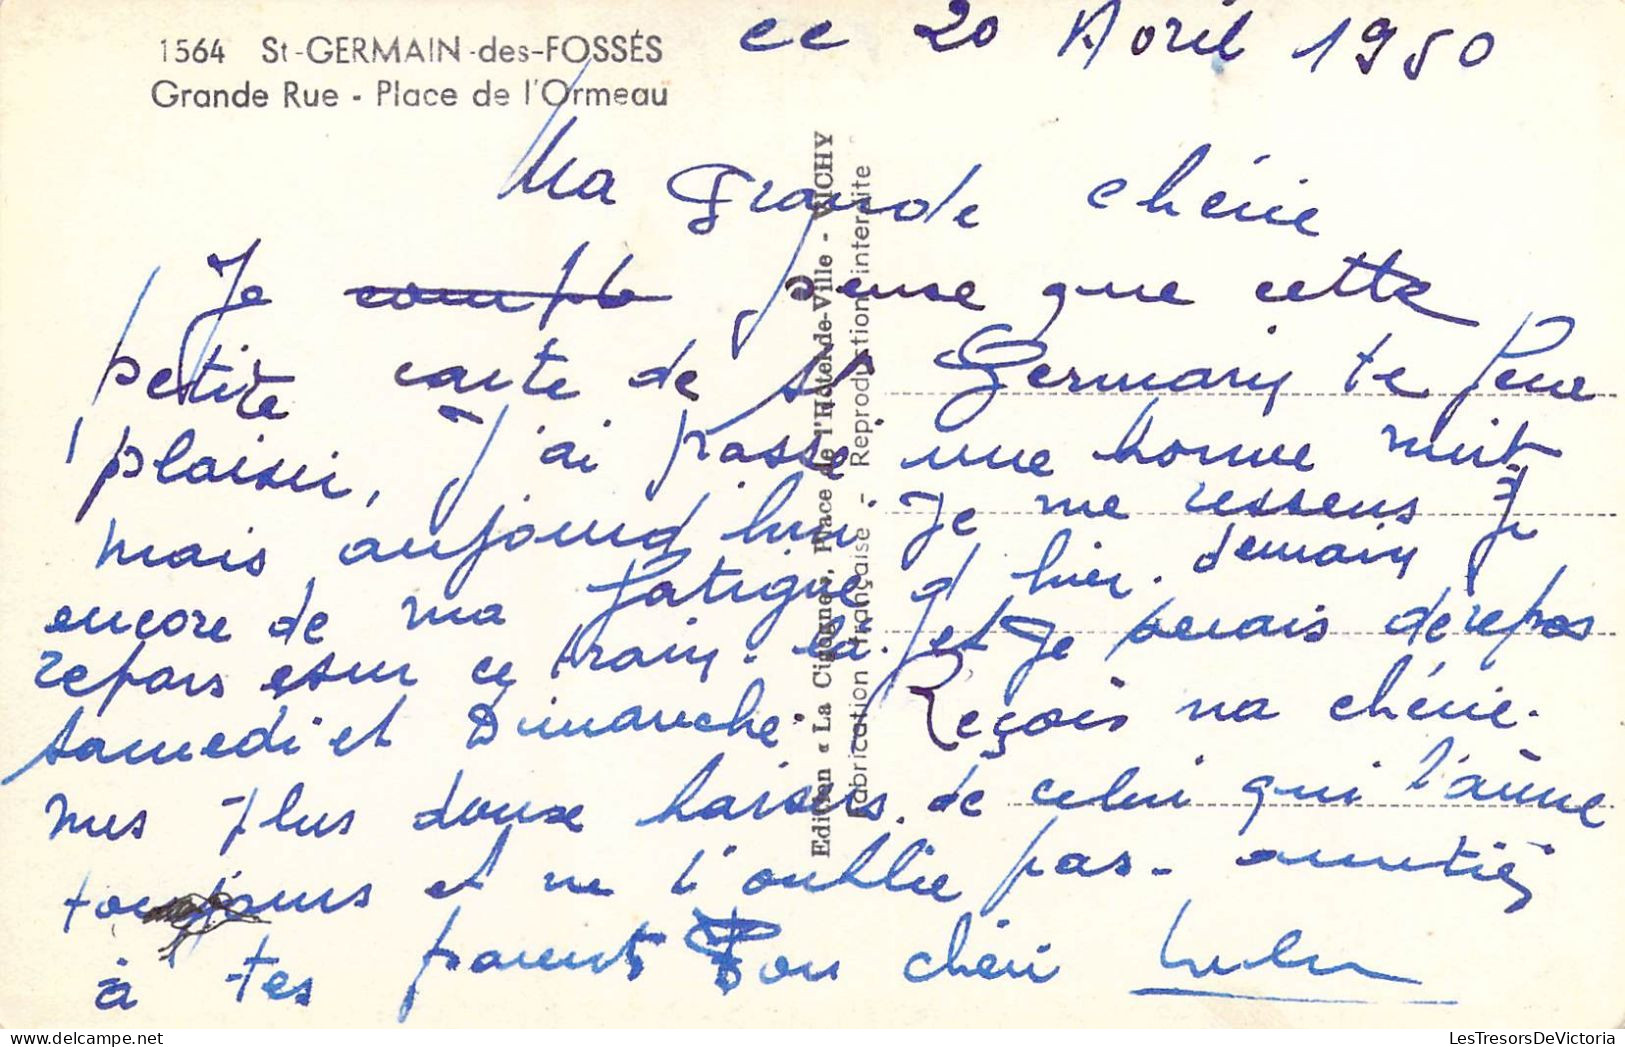 1564 St-GERMAIN-des-FOSSÉS
Grande Rue - Place de l'Ormeau
ce 20 Avril 1950
Ma Grande chérie
Je compte pense que cette
petite carte de St Germain te fera
plaisir, J'ai passé une bonne nuit
mais aujourd hui Je me ressens
encore de ma fatigue d hier. demain Je
repars sur ce train. là. et Je serais de repos
samedi et Dimanche. Reçois ma chérie.
mes plus doux baisers de celui qui t'aime
toujours et ne t'oublie pas. amitiés
à tes parents Ton chéri Lulu
Edition « La Cigogne », Place de l'Hôtel-de-Ville - VICHY
Fabrication française - Reproduction interdite
LesTresorsDeVictoria.com